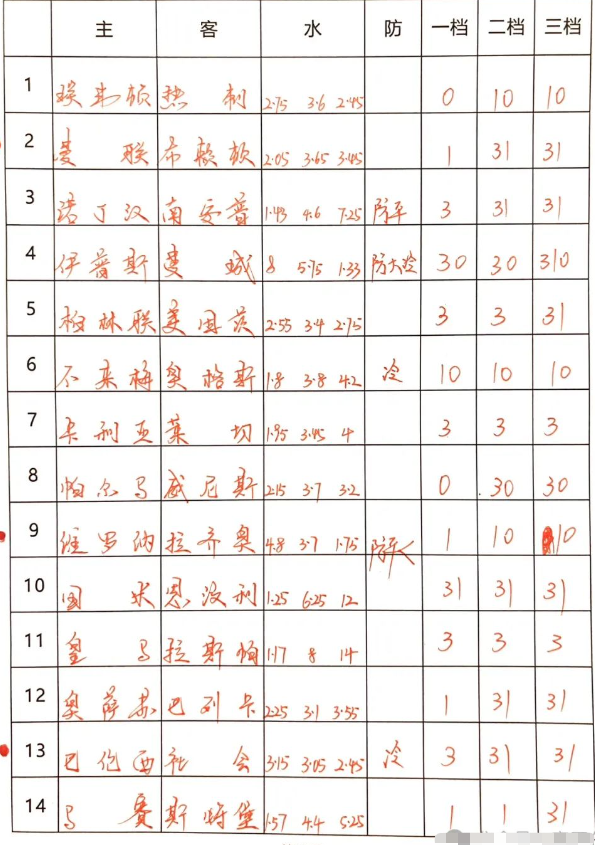 主 客 水 防 一档 二档 三档
1 埃弗顿 热刺 2.75 3.6 2.45 0 10 10
2 曼联 布赖顿 2.05 3.65 3.45 1 31 31
3 诺丁汉 南安普 1.43 4.6 7.25 防平 3 31 31
4 伊普斯 曼城 8 5.75 1.33 防大冷 30 30 310
5 柏林联 美因茨 2.55 3.4 2.75 3 3 31
6 不来梅 奥格斯 1.8 3.8 4.2 冷 10 10 10
7 卡利亚 莱切 1.95 3.45 4 3 3 3
8 帕尔马 威尼斯 2.15 3.7 3.2 0 30 30
9 维罗纳 拉齐奥 4.8 3.7 1.75 防平 1 10 10
10 国米 恩波利 1.25 6.25 12 31 31 31
11 皇马 拉斯帕 1.17 8 14 3 3 3
12 奥萨苏 巴列卡 2.25 3.1 3.55 1 31 31
13 巴伦西 社会 3.15 3.05 2.45 冷 3 31 31
14 马赛 斯特堡 1.57 4.4 5.25 1 1 31